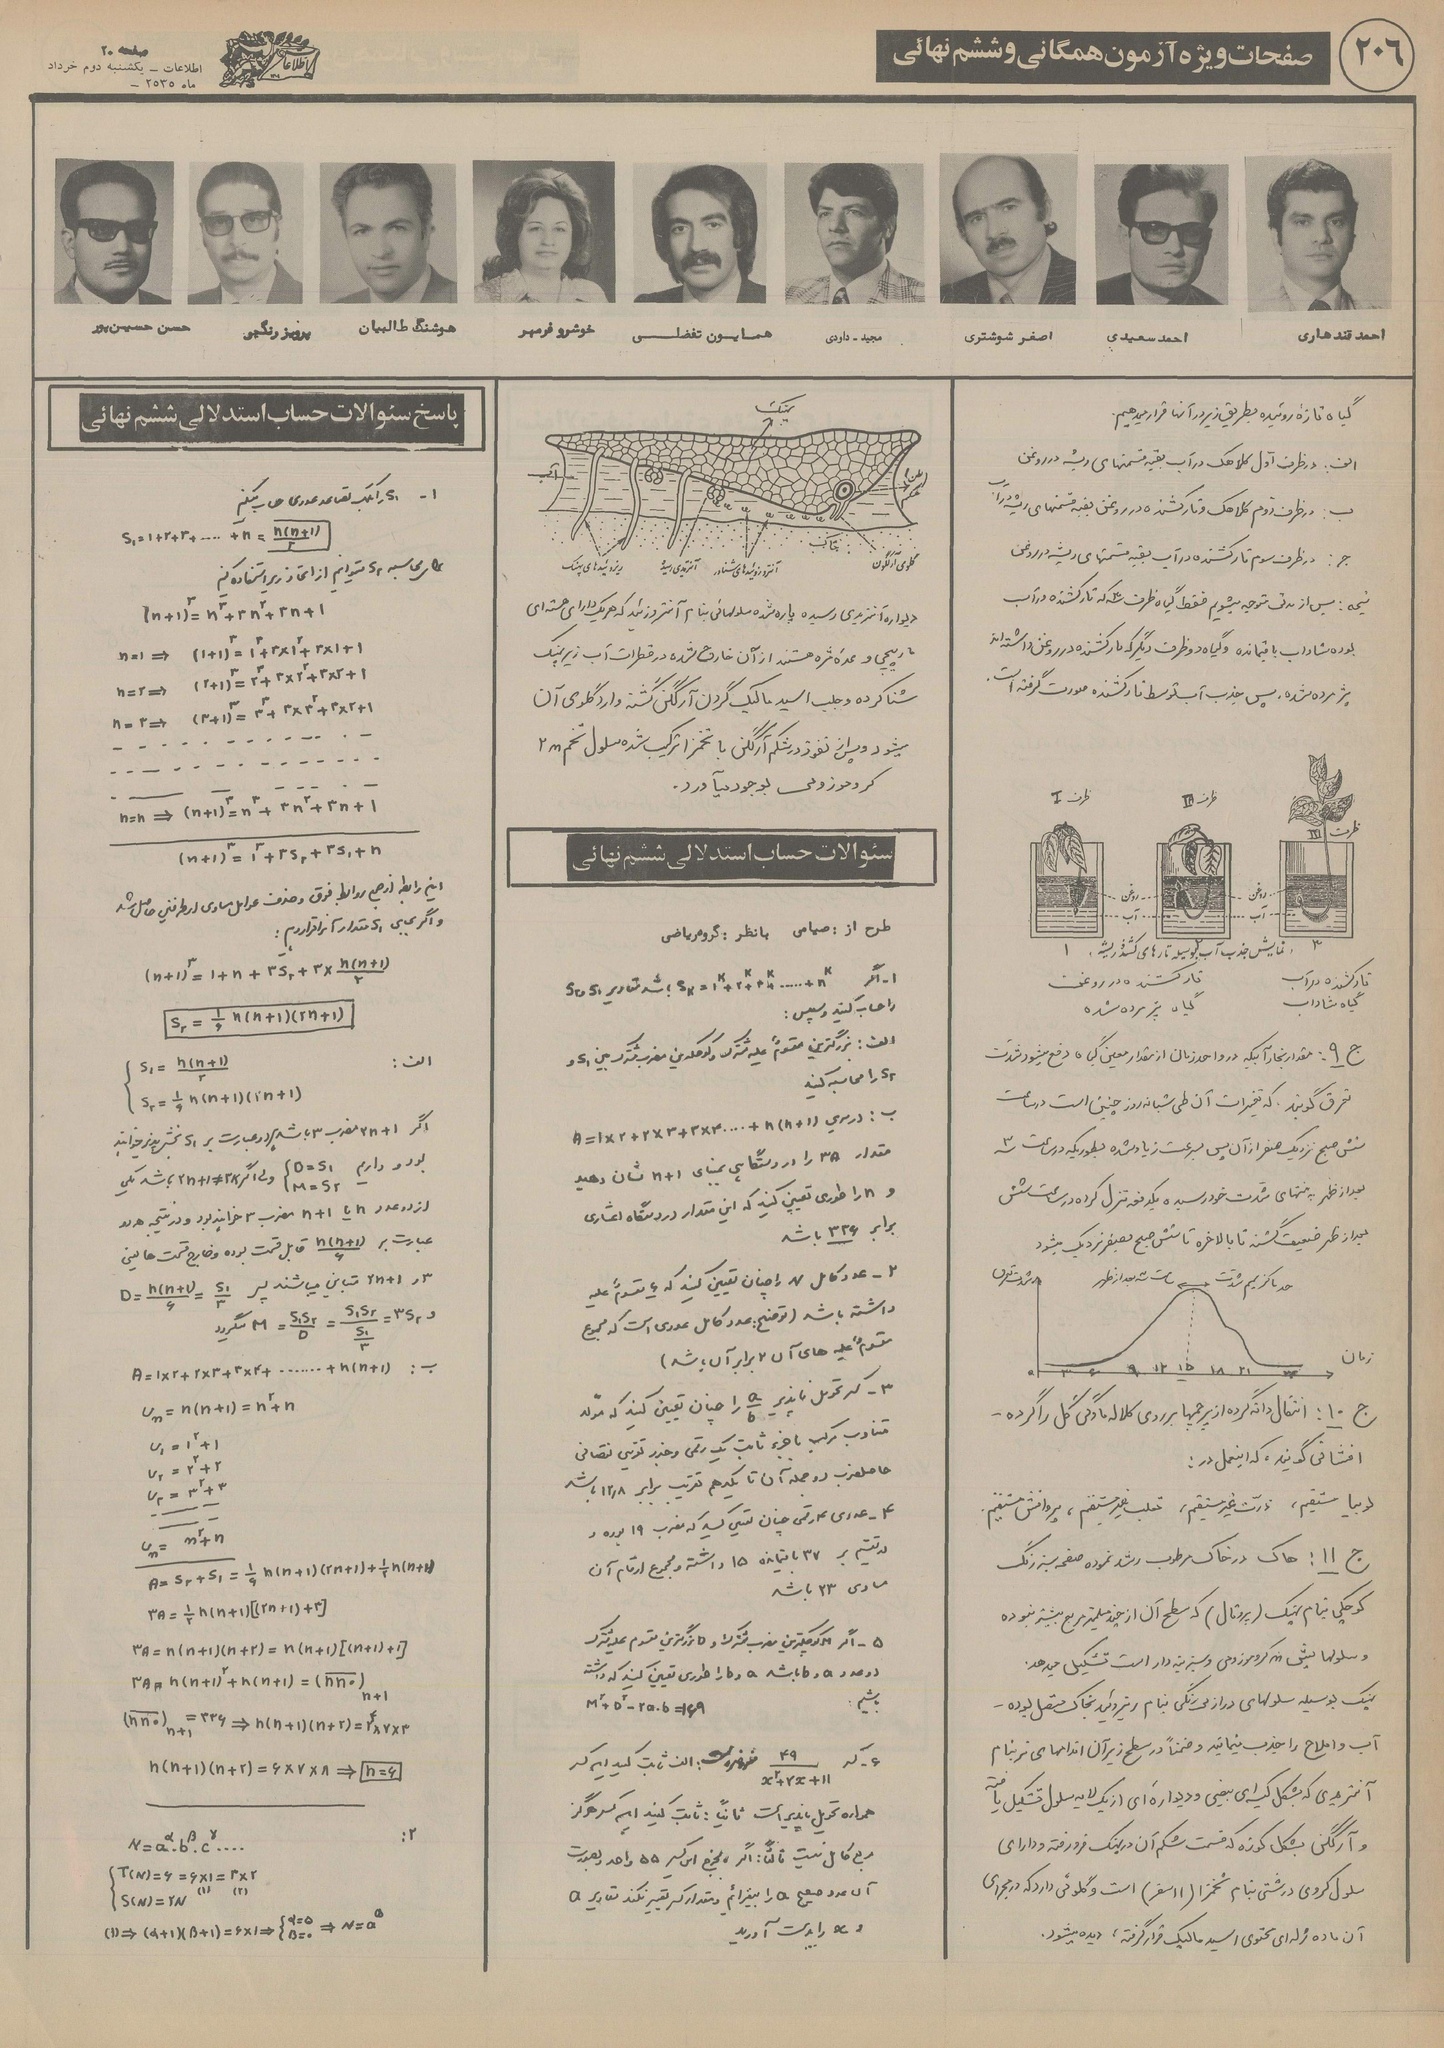 ۲۰۶
صفحات ویژه آزمون همگانی و ششم نهائی
اطلاعات
صفحه ۲۰
اطلاعات ـ یکشنبه دوم خرداد
ماه ۲۵۳۵ ـ
احمد قندهاری
احمد سعیدی
اصغر شوشتری
مجید ـ داودی
همایون تفضلی
خوشرو فرمهر
هوشنگ طالبیان
پرویز رنگچی
حسن حسین‌پور
گیاه تازه روئیده بطریق زیر در آنها قرار میدهیم.
الف: در ظرف اول کلاهک در آب بقیه قسمتهای ریشه در روغن
ب: در ظرف دوم کلاهک و تارکشنده در روغن بقیه قسمتهای ریشه در آب
ج: در ظرف سوم تارکشنده در آب بقیه قسمتهای ریشه در روغن
نتیجه: پس از مدتی متوجه میشویم فقط گیاه ظرف ۳ که تارکشنده در آب
بوده شاداب باقیمانده و گیاه دو ظرف دیگر که تارکشنده در روغن داشته‌اند
پژمرده شده، پس جذب آب توسط تارکشنده صورت گرفته است.
ظرف I
ظرف II
ظرف III
روغن
آب
روغن
آب
۱ نمایش جذب آب بوسیله تارهای کشنده ریشه ۳
تارکشنده در آب
گیاه شاداب
تارکشنده در روغن
گیاه پژمرده شده
ج ۹: مقدار بخار آبیکه در واحد زمان از مقدار معین گیاه دفع میشود شدت
تعرق گویند، که تغییرات آن طی شبانه روز چنین است در ساعت
شش صبح نزدیک صفر از آن پس بسرعت زیاد شده بطوریکه در ساعت ۳
بعد از ظهر بمنتهای شدت خود رسیده یکدفعه تنزل کرده در ساعت شش
بعد از ظهر ضعیف گشته تا بالاخره تا شش صبح بصفر نزدیک میشود
شدت تعرق
حداکثر شدت
ساعت سه بعد از ظهر
زمان
۰ ۳ ۶ ۹ ۱۲ ۱۵ ۱۸ ۲۱ ۲۴
ج ۱۰: انتقال دانه گرده از پرچمها بر روی کلاله مادگی گل را گرده ـ
افشانی گویند، که اینعمل در:
لوبیا مستقیم، ذرت غیرمستقیم، ثعلب غیرمستقیم، پروانش مستقیم.
ج ۱۱: هاگ در خاک مرطوب رشد نموده صفحه سبز رنگ
کوچکی بنام پنیک (پروتال) که سطح آن از چند میلیمتر مربع بیشتر نبوده
و سلولهایش n کروموزومی و سبزینه دار است تشکیل میدهد.
پنیک بوسیله سلولهای دراز بی‌رنگی بنام ریزوئید بخاک متصل بوده ـ
آب و املاح را جذب مینماید و ضمناً در سطح زیر آن اندامهای نر بنام
آنتریدی که بشکل کیسه‌ای بیضی و دیواره‌ای از یک لایه سلول تشکیل یافته
و آرکگنی بشکل کوزه که قسمت شکم آن در پنیک فرو رفته و دارای
سلول کروی درشتی بنام تخمزا (اسفر) است و گلوئی دارد که در مجرای
آن ماده لزله‌ای محتوی اسید مالیک قرار گرفته، دیده میشود.
پنیک
آب
خاک
گلوی آرکگون
آنتروزوئیدهای شناور
آنتریدی رسیده
ریزوئیدهای پنیک
دیواره آنتریدی رسیده پاره شده سلولهائی بنام آنتروزوئید که هریک دارای هسته‌ای
مارپیچی و عده مژه هستند از آن خارج شده در قطرات آب زیر پنیک
شنا کرده و جلب اسید مالیک گردن آرکگن گشته وارد گلوی آن
میشود و پس از نفوذ در شکم آرکگن با تخمزا ترکیب شده سلول تخم ۲n
کروموزومی بوجود میآورد.
سئوالات حساب استدلالی ششم نهائی
طرح از: صیامی بانظر: گروه ریاضی
۱ـ اگر Sₖ = ۱ᵏ+۲ᵏ+۳ᵏ+.....+nᵏ باشد مقادیر S₁ و S₂
را حساب کنید و سپس:
الف: بزرگترین مقسوم علیه مشترک و کوچکترین مضرب مشترک بین S₁ و
S₂ را محاسبه کنید
ب: در سری A=۱×۲+۲×۳+۳×۴....+n(n+۱)
مقدار ۳A را در دستگاهی بمبنای n+۱ نشان دهید
و n را طوری تعیین کنید که این مقدار در دستگاه اعشاری
برابر ۳۳۶ باشد
۲ـ عدد کامل N را چنان تعیین کنید که ۶ مقسوم علیه
داشته باشد (توضیح: عدد کامل عددی است که مجموع
مقسوم علیه های آن ۲ برابر آن باشد)
۳ـ کسر تحویل ناپذیر a/b را چنان تعیین کنید که مولد
متناوب مرکب با جزء ثابت یک رقمی و جذر تقریبی نقصانی
حاصلضرب دو جمله آن تا یکدهم تقریب برابر ۱۲٫۸ باشد
۴ـ عددی ۴ رقمی چنان تعیین کنید که مضرب ۱۹ بوده و
در تقسیم بر ۳۷ باقیمانده ۱۵ داشته و مجموع ارقام آن
مساوی ۲۳ باشد
۵ـ اگر M کوچکترین مضرب مشترک و D بزرگترین مقسوم علیه مشترک
دو عدد a و b باشد a و b را طوری تعیین کنید که داشته
باشیم: M²+D²−۲a.b=۱۶۹
۶ـ کسر ۴۹/(x²+۲x+۱۱) مفروض است: الف ثابت کنید این کسر
همواره تحویل پذیر است ثانیاً: ثابت کنید این کسر هرگز
مربع کامل نیست ثالثاً: اگر بمخرج این کسر ۵۵ واحد و بصورت
آن عدد صحیح a را بیفزائیم و مقدار کسر تغییر نکند مقادیر a
و x را بدست آورید
پاسخ سئوالات حساب استدلالی ششم نهائی
۱ـ S₁ را بکمک تصاعد عددی حساب میکنیم
S₁=۱+۲+۳+.....+n = n(n+۱)/۲
برای محاسبه S₂ میتوانیم از اتحاد زیر استفاده کنیم
(n+۱)³=n³+۳n²+۳n+۱
n=۱ ⇒ (۱+۱)³=۱³+۳×۱²+۳×۱+۱
n=۲ ⇒ (۲+۱)³=۲³+۳×۲²+۳×۲+۱
n=۳ ⇒ (۳+۱)³=۳³+۳×۳²+۳×۳+۱
n=n ⇒ (n+۱)³=n³+۳n²+۳n+۱
(n+۱)³=۱³+۳S₂+۳S₁+n
این رابطه از جمع روابط فوق و حذف عوامل مساوی از طرفین حاصل شد
و اگر بجای S₁ مقدار آنرا قرار دهیم:
(n+۱)³=۱+n+۳S₂+۳×n(n+۱)/۲
S₂=۱/۶ n(n+۱)(۲n+۱)
الف: S₁=n(n+۱)/۲
S₂=۱/۶ n(n+۱)(۲n+۱)
اگر ۲n+۱ مضرب ۳ باشد دو عبارت بر S₁ بخش پذیر خواهند
بود و داریم D=S₁ M=S₂ ولی اگر ۲n+۱≠۳k باشد یکی
از دو عدد n یا n+۱ مضرب ۳ خواهند بود و در نتیجه هر دو
عبارت بر n(n+۱)/۶ قابل قسمت بوده و خارج قسمت ها یعنی
۳ و ۲n+۱ متباین میباشند پس D=n(n+۱)/۶=S₁/۳
و M=S₁S₂/D=S₁S₂/(S₁/۳)=۳S₂ میگردد
ب: A=۱×۲+۲×۳+۳×۴+.......+n(n+۱)
uₙ=n(n+۱)=n²+n
u₁=۱²+۱
u₂=۲²+۲
u₃=۳²+۳
uₙ=n²+n
A=S₂+S₁=۱/۶ n(n+۱)(۲n+۱)+۱/۲ n(n+۱)
۳A=۱/۲ n(n+۱)[(۲n+۱)+۳]
۳A=n(n+۱)(n+۲)=n(n+۱)[(n+۱)+۱]
۳A=n(n+۱)²+n(n+۱)=(nn۰)ₙ₊₁
(nn۰)ₙ₊₁=۳۳۶ ⇒ n(n+۱)(n+۲)=۲⁴×۷×۳
n(n+۱)(n+۲)=۶×۷×۸ ⇒ n=۶
۲: N=aᵅ.bᵝ.cᵞ....
T(N)=۶=۶×۱=۳×۲
(۱) (۲)
S(N)=۲N
(۱)⇒(α+۱)(β+۱)=۶×۱⇒ α=۵ β=۰ ⇒ N=a⁵